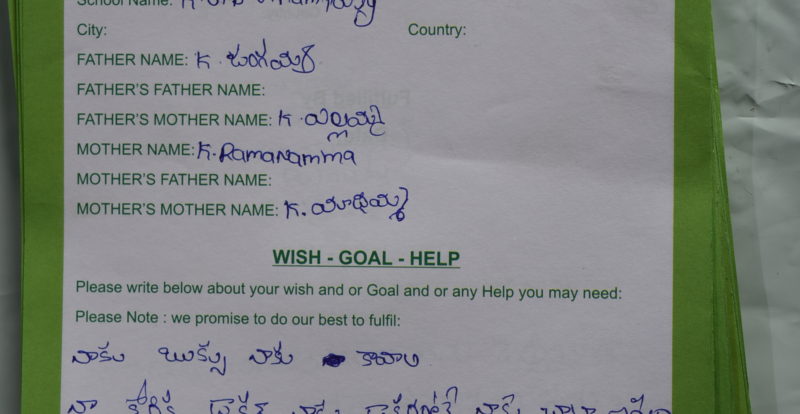 School Name: K.
City: Country:
FATHER NAME: K.
FATHER'S FATHER NAME:
FATHER'S MOTHER NAME: K. ఎల్లమ్మ
MOTHER NAME: K. Ramanamma
MOTHER'S FATHER NAME:
MOTHER'S MOTHER NAME: K. యాదమ్మ
WISH - GOAL - HELP
Please write below about your wish and or Goal and or any Help you may need:
Please Note : we promise to do our best to fulfil:
నాకు బుక్స్ నాకు కావాల
నా కోరిక డాక్టర్ నాకు